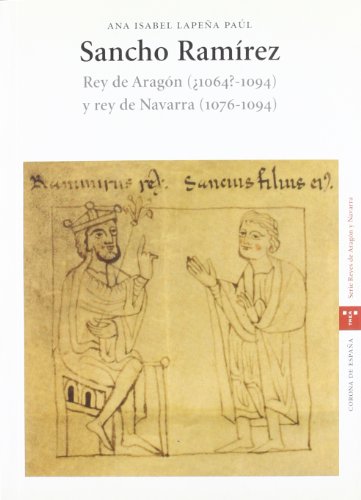 ANA ISABEL LAPEÑA PAÚL
Sancho Ramírez
Rey de Aragón (¿1064?-1094)
y rey de Navarra (1076-1094)
Ranimirus rex. Sancius filius ei9.
Serie Reyes de Aragón y Navarra
TREA
CORONA DE ESPAÑA